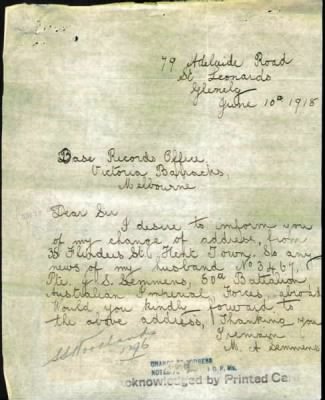 79 Adelaide Road
St Leonards
Glenelg
June 10th 1918
Base Records Office,
Victoria Barracks,
Melbourne
Dear Sir
I desire to inform you
of my change of address, from
35 Flinders St, Kent Town, So any
news of my husband No 3467,
Pte S. Semmens, 50th Battalion
Australian Imperial Forces, abroad
Would you kindly forward to
the above address, Thanking you
I remain
M. A Semmens
CHANGE OF ADDRESS
NOTED
cknowledged by Printed Car